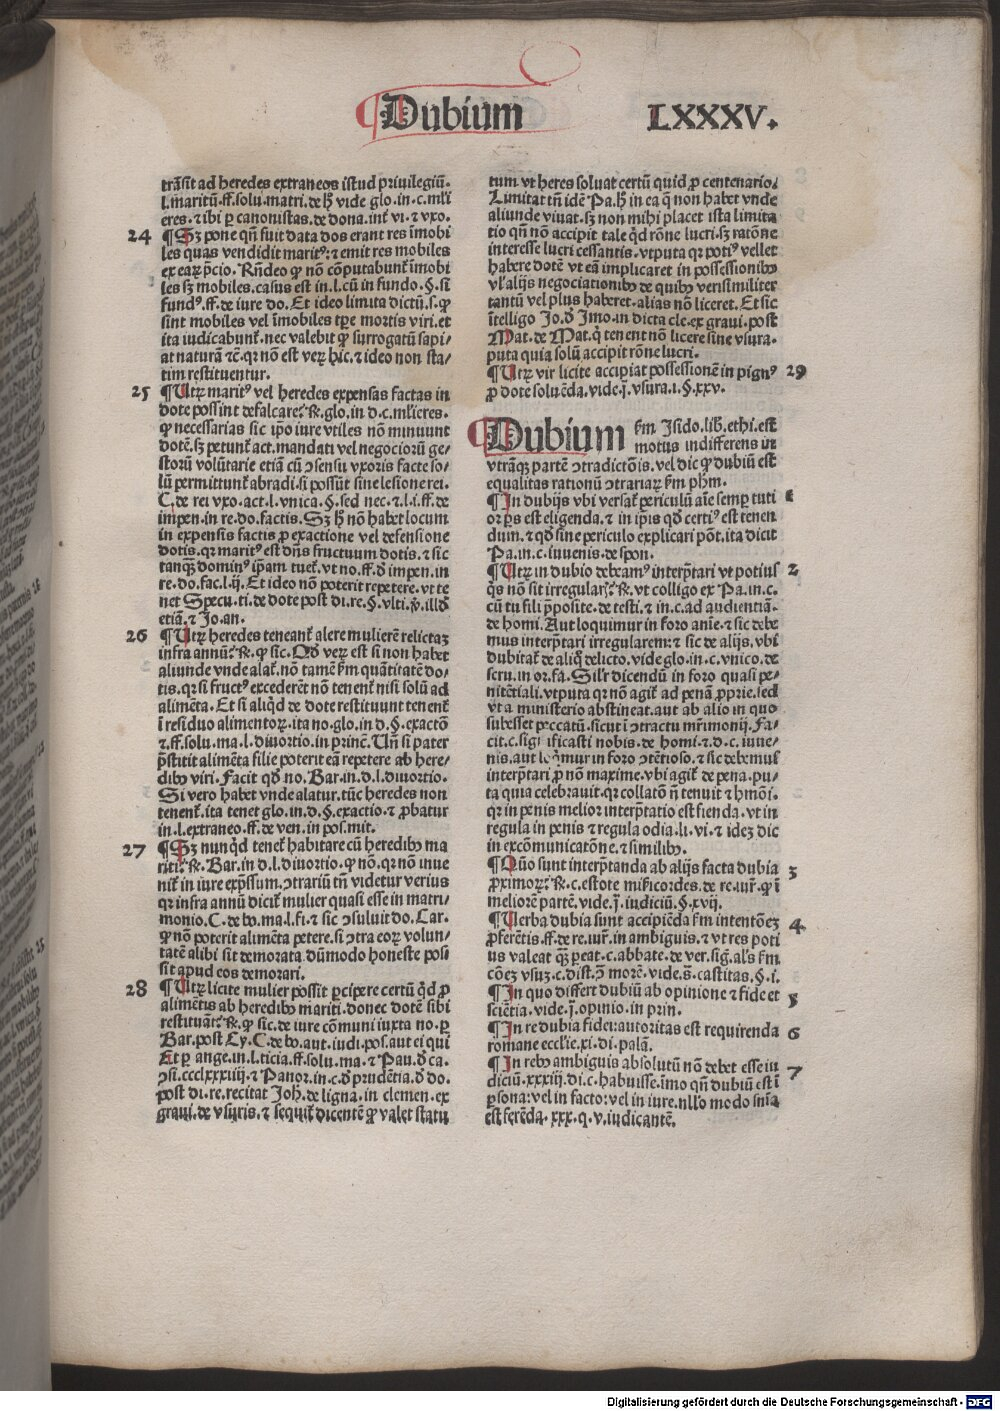 Dubium
LXXXV.
trāsit ad heredes extraneos istud priuilegiū.
l.maritū.ff.solu.matri.de hͦ vide glo.in.c.mł'i
eres.⁊ ibi ꝑ canonistas.de dona.int̄ vi.⁊ vxo.
24 ¶ Sꝫ pone qñ fuit data dos erant res īmobi
les quas vendidit maritꝰ:⁊ emit res mobiles
ex eaꝝ p̄cio. Rñdeo ꝙ nō cōputabunt̄ īmobi
les sꝫ mobiles.casus est in.l.cū in fundo.§.si
fundꝰ.ff.de iure do. Et ideo limita dictū.s.ꝙ
sint mobiles vel īmobiles tꝑe mortis viri.et
ita iudicabunt̄.nec valebit ꝙ surrogatū sapi/
at naturā ⁊c.qꝛ nō est veꝝ hic.⁊ ideo non sta/
tim restituentur.
25 ¶ Utꝝ maritꝰ vel heredes expensas factas in
dote possint defalcare: ℞.glo.in d.c.mł'ieres.
ꝙ necessarias sic ip̄o iure vtiles nō minuunt
dotē.sꝫ petunt̄ act.mandati vel negociorū ge/
storū volūtarie etiā cū ↄsensu vxoris facte so/
lū permittunt̄ abradi.si possūt sine lesione rei.
C.de rei vxo.act.l.vnica.§.sed nec.⁊.l.i.ff.de
impen.in re.do.factis. Sꝫ hͦ nō habet locum
in expensis factis ꝓ exactione vel defensione
dotis.qꝛ maritꝰ est dn̄s fructuum dotis.⁊ sic
tanqꝫ dominꝰ ip̄am tuet̄.vt no.ff.ď impen.in
re.do.fac.l.ij. Et ideo nō poterit repetere.vt te
net Specu.ti.de dote post di.re.§.vlti.ꝟ.illď
etiā.⁊ Jo.an.
26 ¶ Utꝝ heredes teneant̄ alere mulierē relictaꝫ
infra annū: ℞.ꝙ sic. Qď veꝝ est si non habet
aliunde vnde alat̄.nō tamē s̄m quātitatē do/
tis.qꝛ si fructꝰ excederēt nō tenent̄ nisi solū ad
alimēta. Et si aliqď de dote restituunt tenent̄
ī residuo alimentoꝝ.ita no.glo.in d.§.exactō
⁊.ff.solu.ma.l.diuortio.in princ̄. Uñ si pater
p̄stitit alimēta filie poterit ea repetere ab here/
dibꝰ viri. Facit qď no. Bar.in.d.l.diuortio.
Si vero habet vnde alatur.tūc heredes non
tenent̄.ita tenet glo.in.d.§.exactio.⁊ ꝓbatur
in.l.extraneo.ff.de ven.in pos.mit.
27 ¶ Sꝫ nunqď tenet̄ habitare cū heredibꝰ ma
riti: ℞. Bar.in d.l.diuortio.ꝙ non.qꝛ nō inue
nit̄ in iure exp̄ssum.ↄtrariū tn̄ videtur verius
qꝛ infra annū dicit̄ mulier quasi esse in matri/
monio. C.de bo.ma.l.fi.⁊ sic ↄsuluit do. Car.
ꝙ nō poterit alimēta petere.si ↄtra eoꝝ volun/
tatē alibi sit demorata.dūmodo honeste posi
sit apud eos demorari.
28 ¶ Utꝝ licite mulier possit ꝑcipere certū qď ꝓ
alimētis ab heredibꝰ mariti.donec dotē sibi
restituāt: ℞.ꝙ sic.de iure cōmuni iuxta no.ꝑ
Bar.post Cy. C.de bo.aut.iudi.pos.aut ei qui
Et ꝑ ange.in.l.ticia.ff.solu.ma.⁊ Pau.ď ca.
ↄsi.ccclxxxiiij.⁊ Panor.in.c.ď prudētia.ď do.
post di.re.recitat Joh.de ligna.in clemen.ex
graui.de vsuris.⁊ sequit̄ dicentē ꝙ valet statu
tum.vt heres soluat certū quid ꝓ centenario.
Limitat tn̄ idē Pa.hͦ in ea q̄ non habet vnde
aliunde viuat.sꝫ non mihi placet ista limita
tio qñ nō accipit tale qď rōne lucri.sꝫ ratōne
interesse lucri cessantis.vtputa qꝛ potiꝰ vellet
habere dotē vt eā implicaret in possessionibꝰ
vł alijs negociationibꝰ de quibꝰ verisimiliter
tantū vel plus haberet.alias nō liceret. Et sic
ītelligo Jo.ď Imo.in dicta cle.ex graui.post
Mat.de Mat.q̇ tenent nō licere sine vsura.
puta quia solū accipit rōne lucri.
¶ Utꝝ vir licite accipiat possessionē in pignꝰ 29
ꝓ dote soluēda.vide.j̄.vsura.i.§.xxv.
Dubium s̄m Isido.lib.ethi.est
motus indifferens in
vtrāqꝫ partē ↄtradictōis.vel dic ꝙ dubiū est
equalitas rationū ↄtrariaꝝ s̄m ph̄m.
¶ In dubijs vbi versat̄ periculū aīe semꝑ tuti 1
or ꝑs est eligenda.⁊ in ip̄is qď certiꝰ est tenen
dum.⁊ qď sine periculo explicari pōt.ita dicit
Pa.in c.iuuenis.de spon.
¶ Utꝝ in dubio debeamꝰ interp̄tari vt potius 2
q̇s nō sit irregularꝭ: ℞.vt colligo ex Pa.in.c.
cū tu fili p̄posite.de testi.⁊ in.c.ad audientiā.
de homi. Aut loquimur in foro anīe.⁊ sic debe
mus interp̄tari irregularem:⁊ sic de alijs.vbi
dubitat̄ de aliq̊ delicto.vide glo.in.c.vnico.de
scru.in or.fa. Silr̄ dicendū in foro quasi pe/
nitētiali.vtputa qꝛ nō agit̄ ad penā ꝓprie.sed
vt a ministerio abstineat.aut ab alio in quo
subesset peccatū.sicut ī ↄtractu mr̄imonij. Fa/
cit.c.significasti nobis.de homi.⁊.d.c.iuue/
nis.aut loq̄mur in foro ↄtētioso.⁊ sic debemus
interp̄tari ꝓ nō maxime.vbi agit̄ de pena.pu/
ta quia celebrauit.qꝛ collatō n̄ tenuit ⁊ hmōi.
qꝛ in penis melior interp̄tatio est fienda.vt in
regula in penis ⁊ regula odia.li.vi.⁊ ideꝫ dic
in excōmunicatōne.⁊ similibꝰ.
¶ Quō sunt interp̄tanda ab alijs facta dubia 3
ꝓximoꝝ: ℞.c.estote mis̄icordes.de re.iur̄.ꝙ ī
meliorē partē.vide.j̄.iudiciū.§.xvij.
¶ Uerba dubia sunt accipiēda s̄m intentōeꝫ 4
ꝓferētis.ff.de re.iur̄.in ambiguis.⁊ vt res poti
us valeat qꝫ ꝑeat.c.abbate.de ver.sig.al's s̄m
cōeꝫ vsuꝫ.c.dist.ꝯ̄ morē.vide.s̄.castitas.§.i.
¶ In quo differt dubiū ab opinione ⁊ fide et 5
sciētia.vide.j̄.opinio.in prin.
¶ In re dubia fidei:autoritas est requirenda 6
romane eccl'ie.xi.di.palā.
¶ In rebꝰ ambiguis absolutū nō debet esse iu 7
diciū.xxxiij.di.c.habuisse.īmo qñ dubiū est ī
ꝑsona:vel in facto:vel in iure.nll'o modo sn̄ia
est ferēda.xxx.q.v.iudicantē.
Digitalisierung gefördert durch die Deutsche Forschungsgemeinschaft - DFG